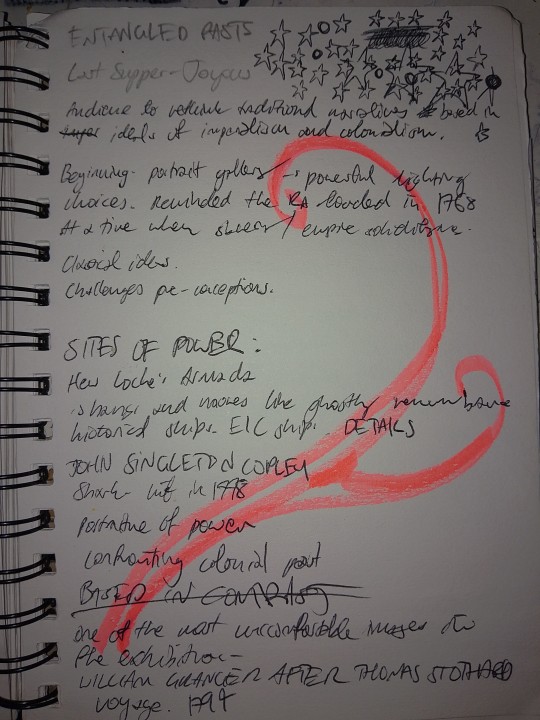 ENTANGLED PASTS
Last Supper - 
Audience to rethink traditional narratives based in
ideals of imperialism and colonialism.
Beginning - portrait gallery → powerful lighting
choices. Reminded the RA founded in 1768
At a time when slavery / empire 
Classical ideas.
Challenges pre-conceptions.
SITES OF POWER:
Hew Locke's Armada
hangs and moves like ghostly remembrance
historical ships. EIC ship. DETAILS
JOHN SINGLETON COPLEY
Shark - in 1778
portraiture of power
confronting colonial past
BASED IN
one of the most uncomfortable images in
the exhibition -
WILLIAM GRAINGER AFTER THOMAS STOTHARD
Voyage. 1794